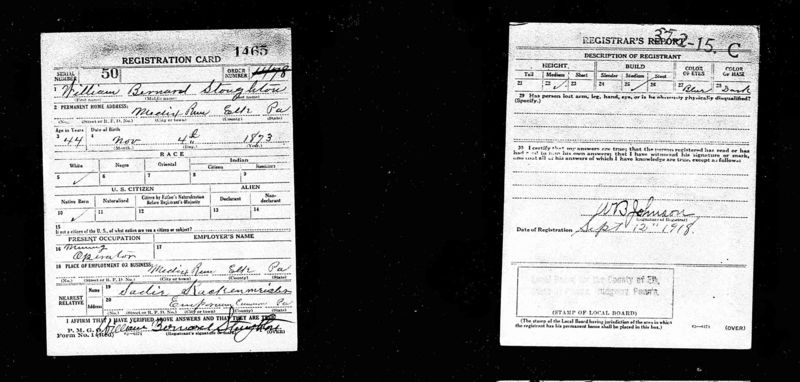 1465
REGISTRATION CARD
SERIAL NUMBER 50 ORDER NUMBER
1 William Bernard Stoughton
(First name) (Middle name) (Last name)
2 PERMANENT HOME ADDRESS:
Medix Run Elk Pa
(No.) (Street or R. F. D. No.) (City or town) (County) (State)
Age in Years Date of Birth
3 44 4 Nov 4th 1873
(Month.) (Day.) (Year.)
RACE
White Negro Oriental Indian
Citizen Noncitizen
5 ✓ 6 7 8 9
U. S. CITIZEN ALIEN
Native Born Naturalized Citizen by Father's Naturalization Before Registrant's Majority Declarant Non-declarant
10 ✓ 11 12 13 14
15
If not a citizen of the U. S., of what nation are you a citizen or subject?
PRESENT OCCUPATION EMPLOYER'S NAME
16 Mining 17
Operator
18 PLACE OF EMPLOYMENT OR BUSINESS:
Medix Run Elk Pa
(No.) (Street or R. F. D. No.) (City or town) (County) (State)
NEAREST RELATIVE Name 19 Sadie
Address 20 Emporium Cameron Pa
(No.) (Street or R. F. D. No.) (City or town) (County) (State)
I AFFIRM THAT I HAVE VERIFIED ABOVE ANSWERS AND THAT THEY ARE TRUE
P. M. G. O.
Form No. 1 (Red) William Bernard Stoughton
(Registrant's signature or mark) (OVER)
REGISTRAR'S REPORT
37-2-15. C
DESCRIPTION OF REGISTRANT
HEIGHT BUILD COLOR OF EYES COLOR OF HAIR
Tall Medium Short Slender Medium Stout
21 22 ✓ 23 24 25 ✓ 26 27 Blue 28 Dark
29 Has person lost arm, leg, hand, eye, or is he obviously physically disqualified?
(Specify.)
30 I certify that my answers are true; that the person registered has read or has
had read to him his own answers; that I have witnessed his signature or mark,
and that all of his answers of which I have knowledge are true, except as follows:
W B Johnson
(Signature of Registrar)
Date of Registration Sept 12" 1918
Local Board for the County of Elk,
Ridgway Penn'a.
(STAMP OF LOCAL BOARD)
(The stamp of the Local Board having jurisdiction of the area in which
the registrant has his permanent home shall be placed in this box.)
(OVER)